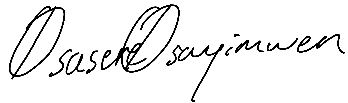 Osasere Osayimwen